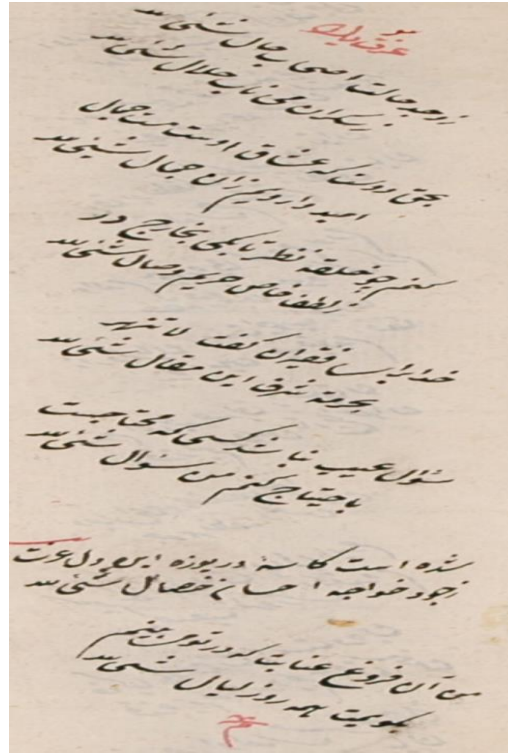 ز وجد و حالت اصحاب حال شیئی لله
ز سکران می ناب جلال شیئی لله
بحق دوست که عشاق اوست مست جمال
امید داریم زان جمال شیئی لله
کنم چو حلقه نظر تا بکی بخارج در
ز لطف خاص حریم وصال شیئی لله
خدا را بسا فقیران گفت لا تنهر
بحرمت شرف این مقال شیئی لله
سؤال عیب نباشد کسی که محتاجست
باحتیاج کنم من سؤال شیئی لله
شده است کاسهٔ دریوزه این دل عزت
ز جود خواجه احسان خصال شیئی لله
من آن فروغ عنایت که در تو می بینم
بکویمت همه روز و لیال شیئی لله